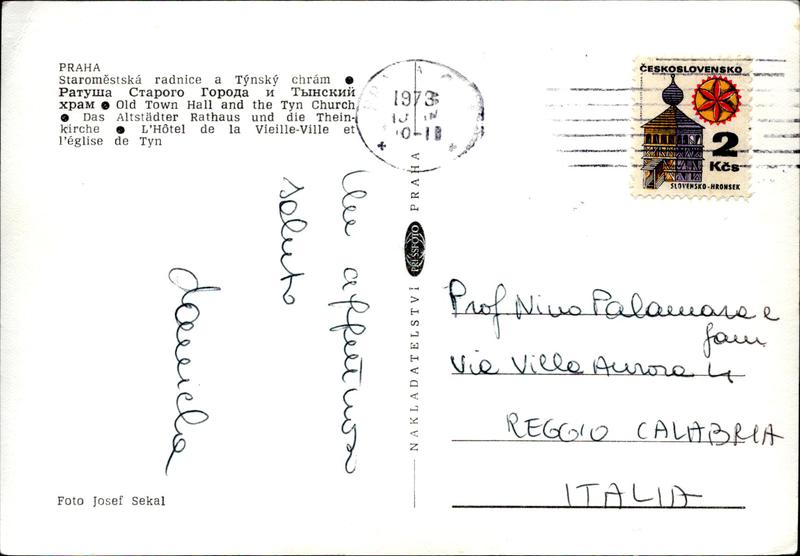 PRAHA
Staroměstská radnice a Týnský chrám ●
Ратуша Старого Города и Тынский
храм ● Old Town Hall and the Tyn Church
● Das Altstädter Rathaus und die Thein-
kirche ● L'Hôtel de la Vieille-Ville et
l'église de Tyn
1973
ČESKOSLOVENSKO
2
Kčs
SLOVENSKO-HRONSEK
Un affettuoso
saluto
Daniela
NAKLADATELSTVÍ PRESSFOTO PRAHA
Prof Nino Palamara e
fam
Via Villa Aurora 4
REGGIO CALABRIA
ITALIA
Foto Josef Sekal